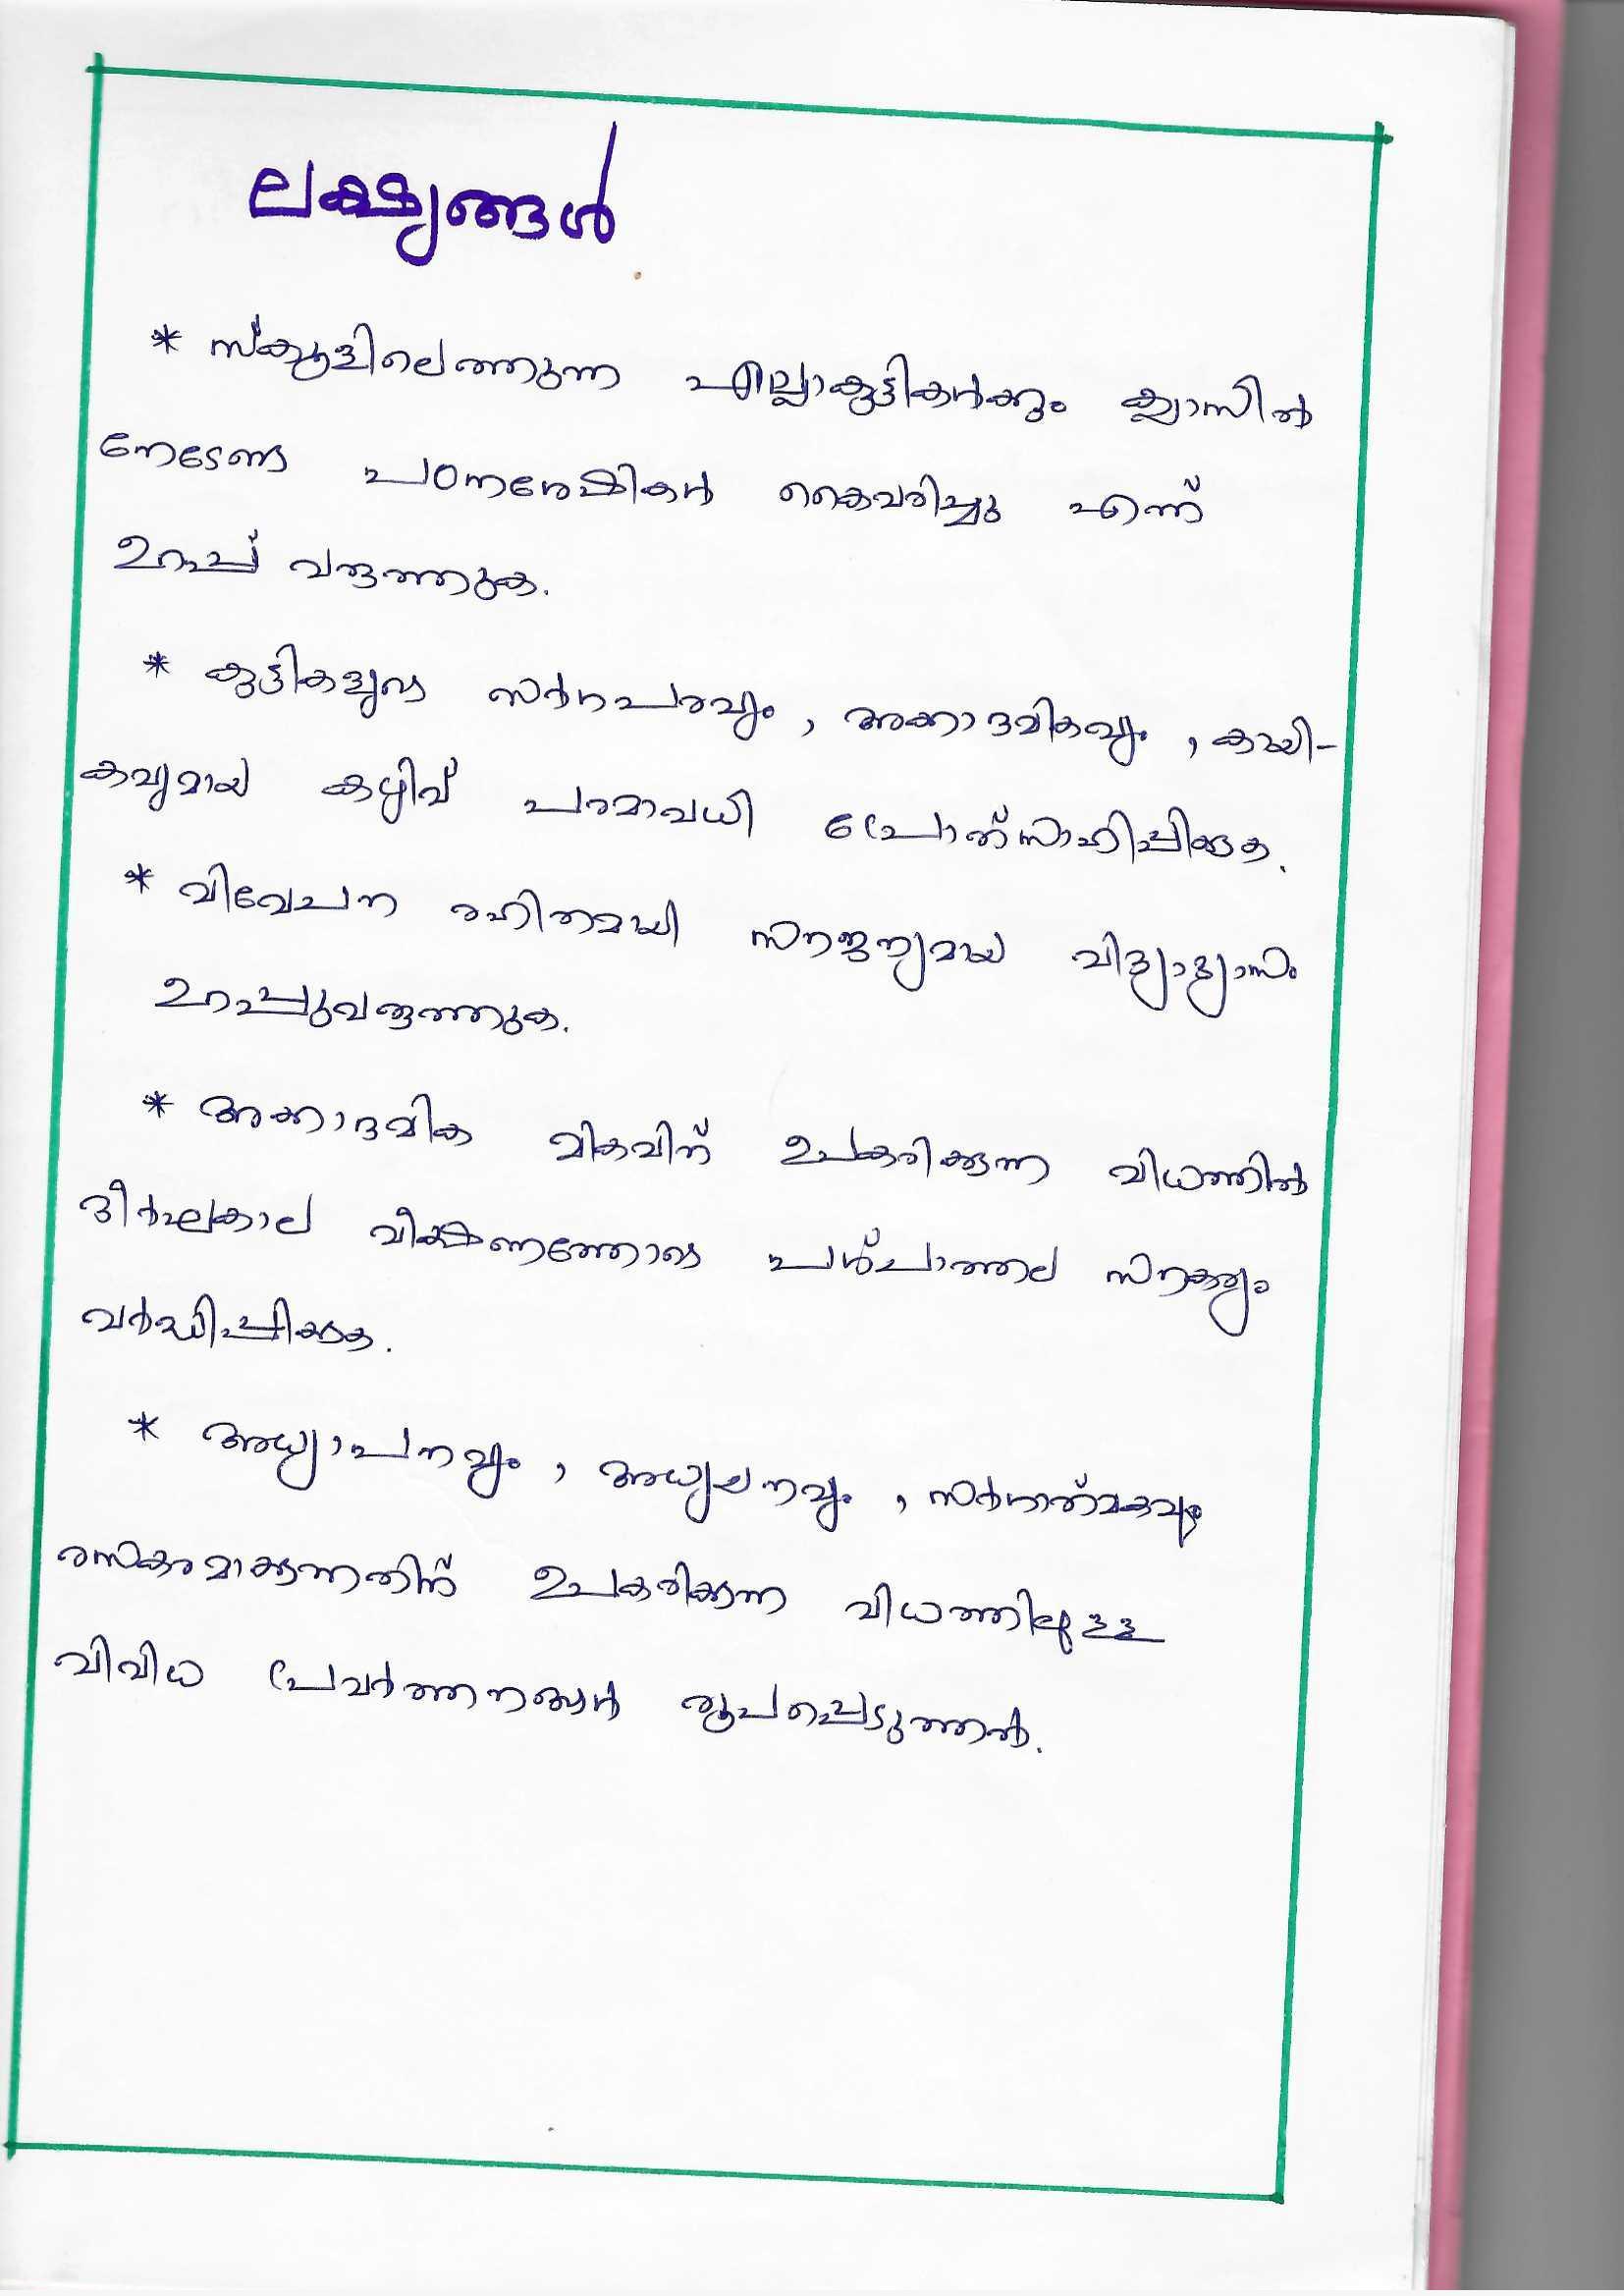 ലക്ഷ്യങ്ങൾ
* സ്കൂളിലെത്തുന്ന എല്ലാകുട്ടികൾക്കും ക്ലാസിൽ
നേടേണ്ട പഠനശേഷികൾ കൈവരിച്ചു എന്ന്
ഉറപ്പ് വരുത്തുക.
* കുട്ടികളുടെ സർഗപരവും , അക്കാദമികവും , കായി-
കവുമായ കഴിവ് പരമാവധി പ്രോത്സാഹിപ്പിക്കുക.
* വിവേചന രഹിതമായി സൗജന്യമായ വിദ്യാഭ്യാസം
ഉറപ്പുവരുത്തുക.
* അക്കാദമിക മികവിന് ഉപകരിക്കുന്ന വിധത്തിൽ
ദീർഘകാല വീക്ഷണത്തോടെ പശ്ചാത്തല സൗകര്യം
വർദ്ധിപ്പിക്കുക.
* അധ്യാപനവും , അധ്യയനവും , സർഗാത്മകവും
രസകരമാക്കുന്നതിന് ഉപകരിക്കുന്ന വിധത്തിലുള്ള
വിവിധ പ്രവർത്തനങ്ങൾ രൂപപ്പെടുത്തൽ.